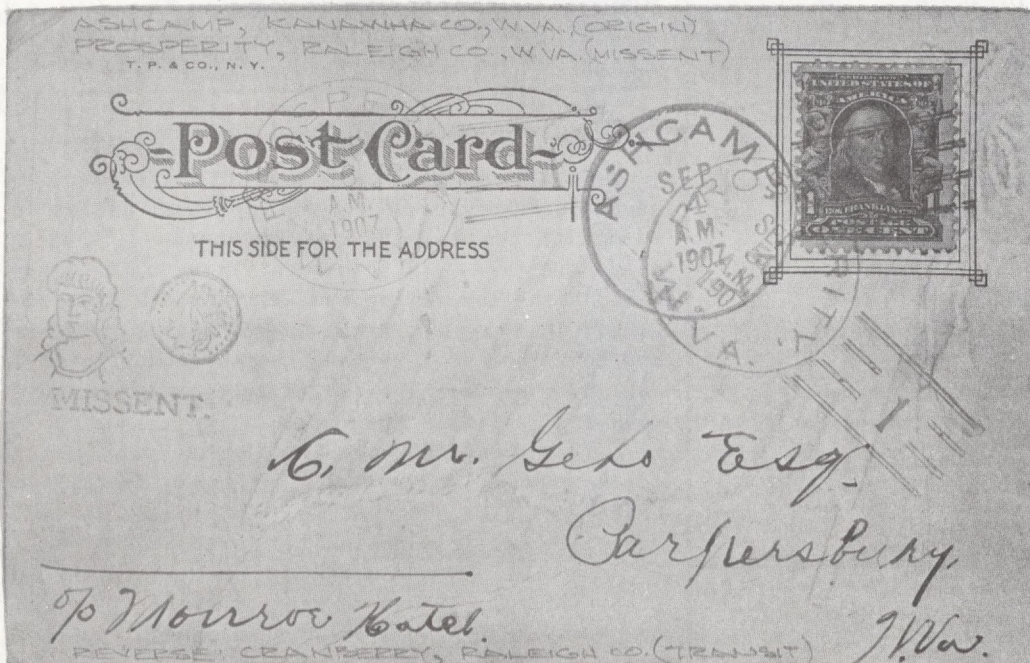 ASHCAMP, KANAWHA CO., W.VA. (ORIGIN)
PROSPERITY, RALEIGH CO., W.VA. (MISSENT)
T. P. & CO., N. Y.
Post Card
THIS SIDE FOR THE ADDRESS
A.M.
1907
ASHCAMP
SEP
A.M.
1907
W. VA.
RITY
A.M.
190
UNITED STATES OF
AMERICA
FRANKLIN
ONE CENT
1
MISSENT.
C. M. Geho Esq.
Parkersburg,
W.Va.
c/o Monroe Hotel.
REVERSE: CRANBERRY, RALEIGH CO. (TRANSIT)